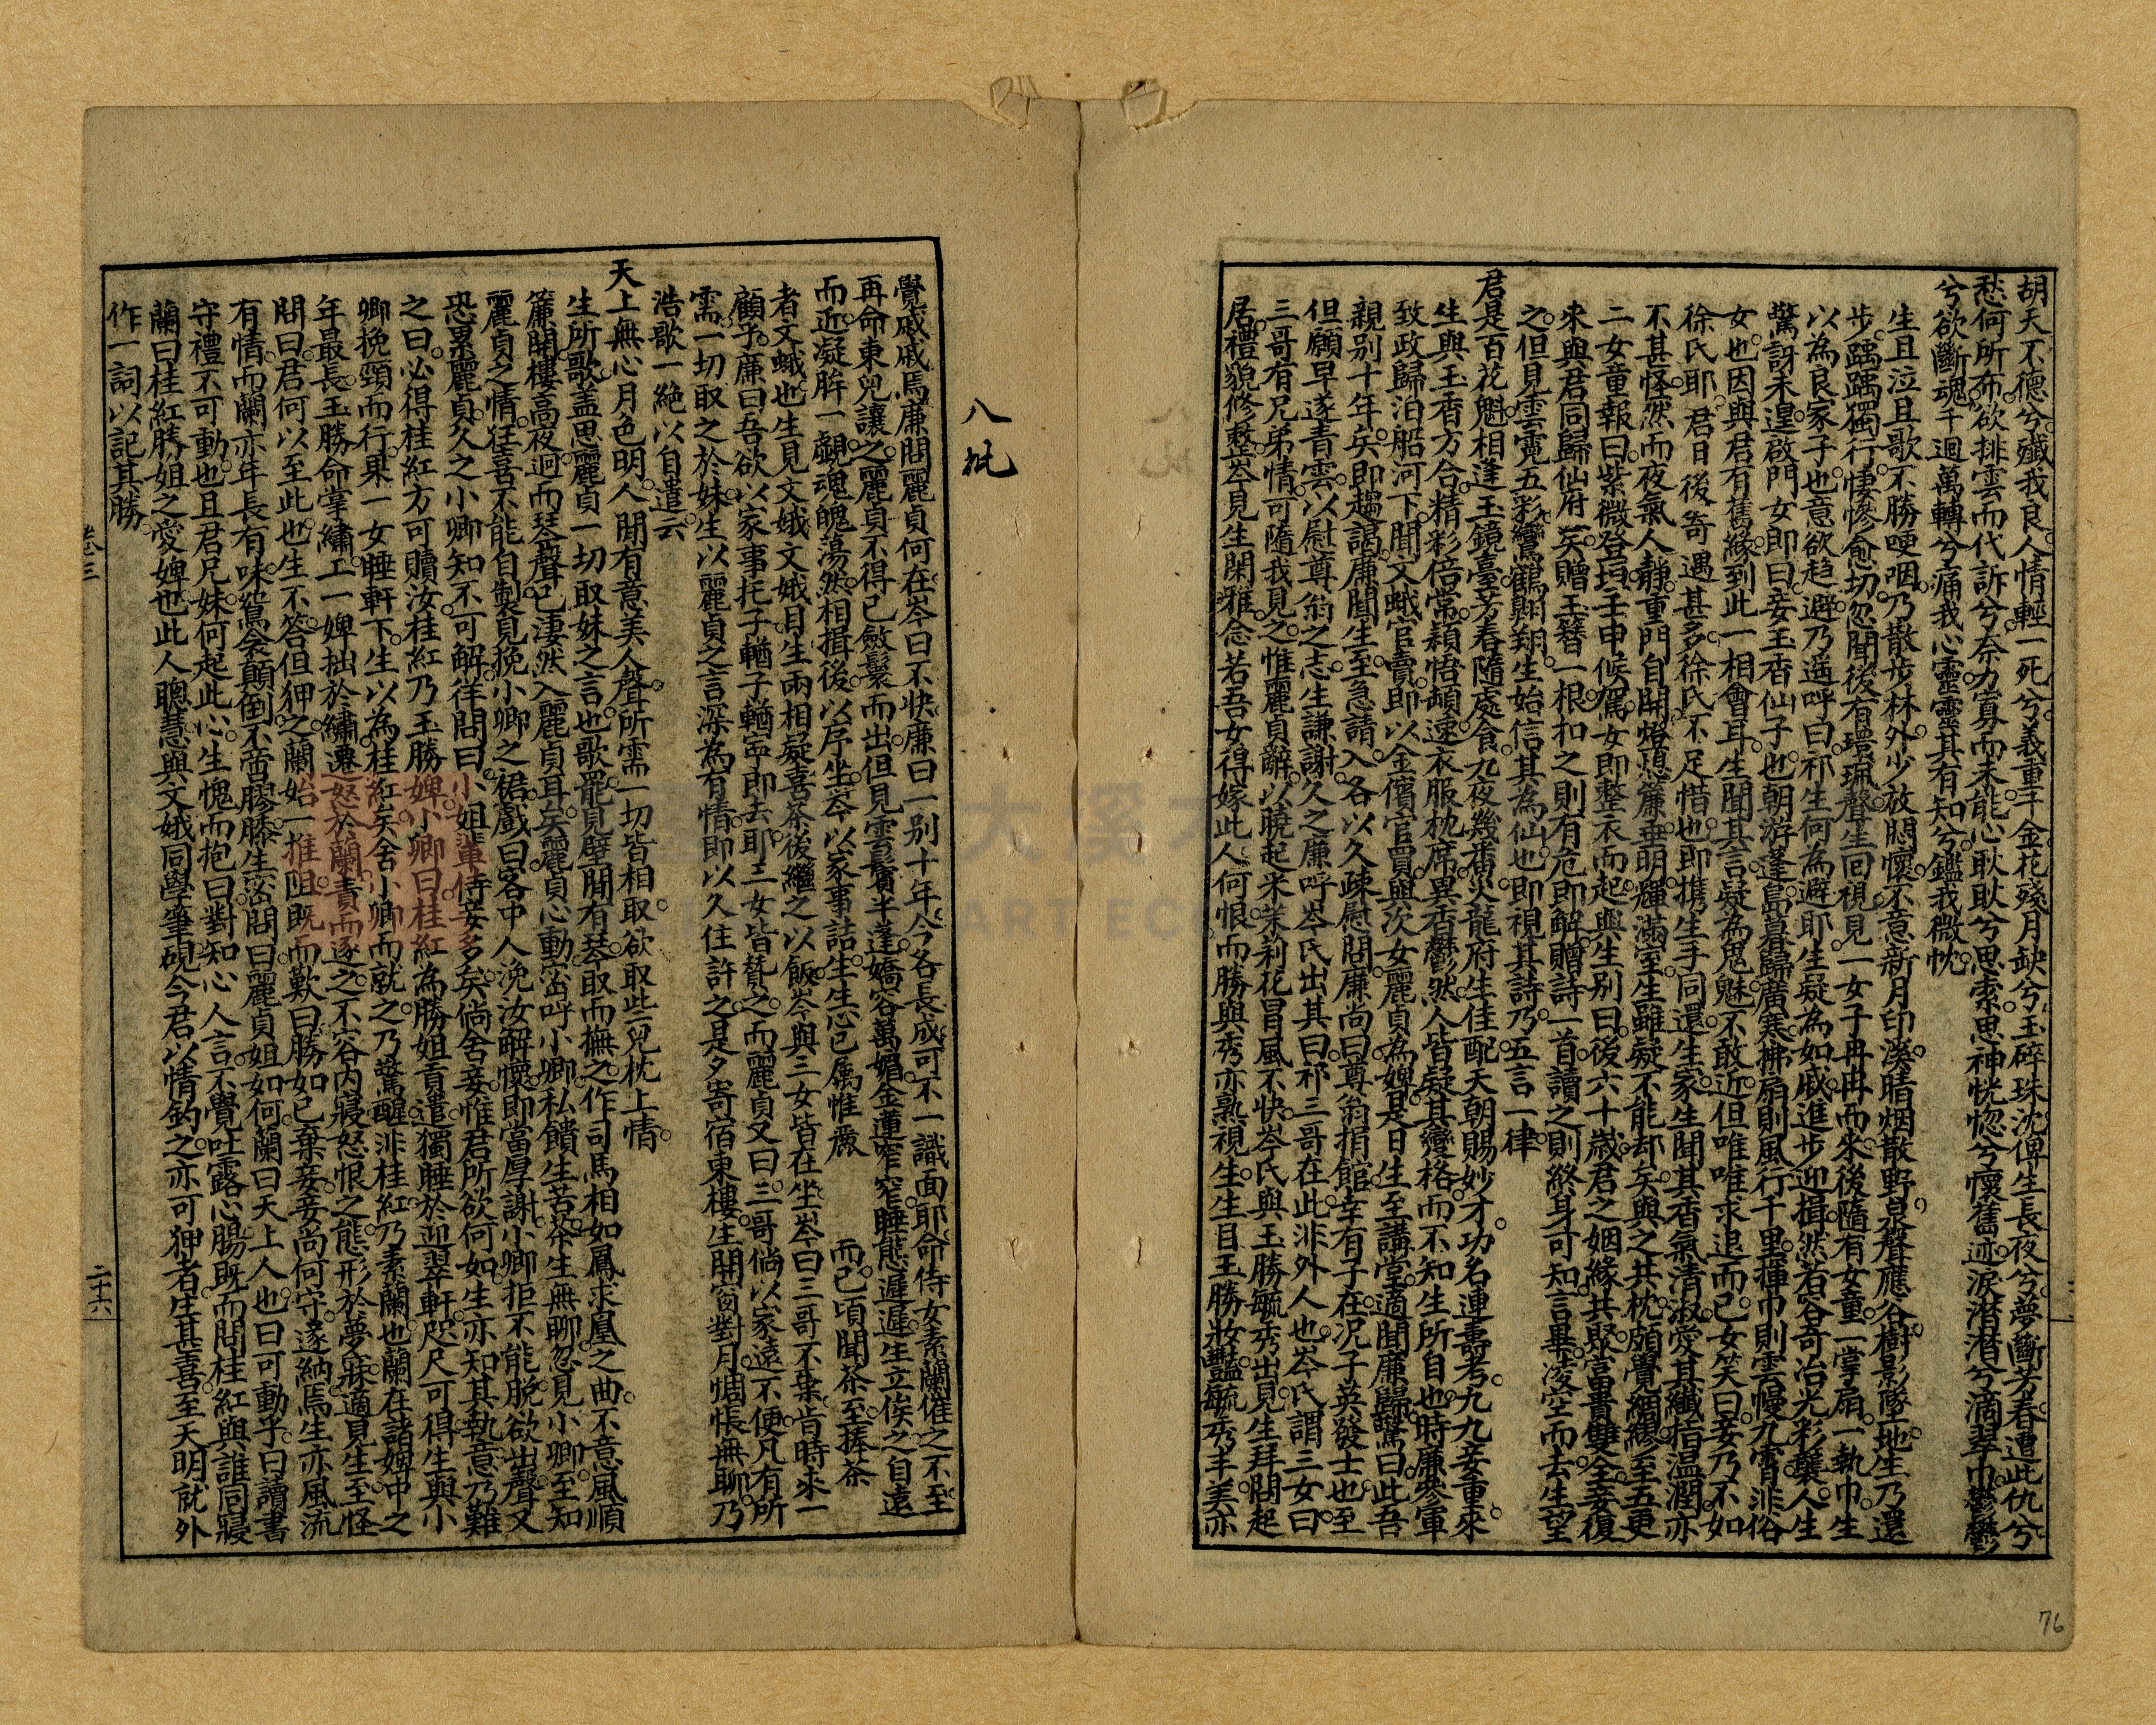 胡天不德兮殲我良人情輕一死兮義重千金花殘月缺兮玉碎珠沈俾生長夜兮夢斷芳春遭此仇兮
愁何所布欲排雲而代訴兮奈力寡而未能心耿耿兮思索思神恍惚兮懷舊迹淚潛潛兮滴翠巾鬱鬱
兮欲斷魂千迴萬轉兮痛我心靈靈其有知兮鑑我微忱
生且泣且歌不勝哽咽乃散步林外少放悶懷不意新月印溪晴烟散野泉聲應谷樹影墜地生乃還
步踽踽獨行悽慘愈切忽聞後有環珮聲生回視見一女子冉冉而來後隨有女童一掌扇一執巾生
以為良家子也意欲趋避乃遥呼曰祁生何為避耶生疑為如戚進步迎揖然若谷奇冶光彩襲人生
驚訝未遑啟門女即曰妾玉香仙子也朝游蓬島暮歸廣寒拂扇則風行千里揮巾則雲幔九霄非俗
女也因與君有舊緣到此一相會耳生聞其言疑為鬼魅不敢近但唯唯求退而已女笑曰妾乃不如
徐氏耶君日後奇遇甚多徐氏不足惜也即携生手同還生家生聞其香氣清淑愛其纖指温潤亦
不甚怪然而夜氣人靜重門自開燈憑簾垂明輝滿室生雖疑不能却矣與之共枕頗覺綢繆至五更
二女童報曰紫微登垣壬申候駕女即整衣而起與生别曰後六十歲君之姻緣共聚富貴雙全妾復
來與君同歸仙府矣贈玉簪一根扣之則有危即解贈詩一首讀之則終身可知言畢凌空而去生望
之但見雲霓五彩鸞鶴翔翔生始信其為仙也即視其詩乃五言一律
君是百花魁相逢玉鏡臺芳春隨處會九夜幾番災龍府生佳配天朝賜妙才功名連壽考九九妾重來
生與玉香方合精彩倍常穎悟頓速衣服枕席異香鬱然人皆疑其變格而不知生所自也時廉參軍
致政歸泊船河下聞文娥官賣即以金償官買與次女麗貞為婢是日生至講堂適聞廉歸驚曰此吾
親别十年矣即趨謁廉聞生至急請入各以久疎慰問廉尚曰尊翁捐館幸有子在况子英發士也至
但願早遂青雲以慰尊翁之志生謙謝久之廉呼岑氏出其曰祁三哥在此非外人也岑氏謂三女曰
三哥有兄弟情可隨我見之惟麗貞辭以曉起米茉莉花冒風不快岑氏與玉勝毓秀出見生拜問起
居禮貌修整岑見生閑雅念若吾女得嫁此人何恨而勝與秀亦熟視生生目玉勝妝豔毓秀丰美亦
八批
覺戚戚焉廉問麗貞何在岑曰不快廉曰一别十年今各長成可不一識面耶命侍女素蘭催之不至
再命東兒讓之麗貞不得已斂鬟而出但見雲鬢半蓬嬌容萬媚金蓮窄窄睡態遲遲生立俟之自遠
而近凝眸一覷魂魄蕩然相揖後以序坐岑以家事詰生生心已属惟應 而已頃聞茶至捧茶
者文娥也生見文娥文娥目生兩相疑喜茶後繼之以飯岑與三女皆在坐岑曰三哥不棄肯時來一
顧乎廉曰吾欲以家事托子輶子輶寧即去耶三女皆贊之而麗貞又曰三哥倘以家遠不便凡有所
需一切取之於妹生以麗貞之言深為有情即以久住許之是夕寄宿東樓生開窗對月惆悵無聊乃
浩歌一絶以自遣云
天上無心月色明人間有意美人聲所需一切皆相取欲取些兒枕上情
生所歌盖思麗貞一切取妹之言也歌罷見壁間有琴取而撫之作司馬相如鳳求凰之曲不意風順
簾開樓高夜迥而琴聲已淒然入麗貞耳矣麗貞心動密呼小卿私饋生苦茶生無聊忽見小卿至知
麗貞之情狂喜不能自製見挽小卿之裙戲曰客中人浼汝解懷即當厚謝小卿拒不能脱欲出聲又
恐累麗貞久之小卿知不可解徉問曰小姐輩侍妾多矣倘舍妾惟君所欲何如生亦知其執意乃難
之曰必得桂紅方可贖汝桂紅乃玉勝婢小卿曰桂紅為勝姐責遣獨睡於迎翠軒咫尺可得生與小
卿挽頸而行果一女睡軒下生以為桂紅矣舍小卿而就之乃驚醒非桂紅乃素蘭也蘭在諸婢中之
年最長玉勝命掌繡工一婢拙於繡遷怒於蘭責而逐之不容内寢怒恨之態形於夢寐適見生至怪
問曰君何以至此也生不答但狎之蘭始一推阻既而歎曰勝如已棄妾妾尚何守遂納焉生亦風流
有情而蘭亦年長有味鴛衾顛倒不啻膠漆生密問曰麗貞姐如何蘭曰天上人也曰可動乎曰讀書
守禮不可動也且君兄妹何起此心生愧而抱曰對知心人言不覺吐露心腸既而問桂紅與誰同寢
蘭曰桂紅勝姐之愛婢也此人聰慧與文娥同學筆硯今君以情鈎之亦可狎者生甚喜至天明就外
作一詞以記其勝
卷三
二十六
76